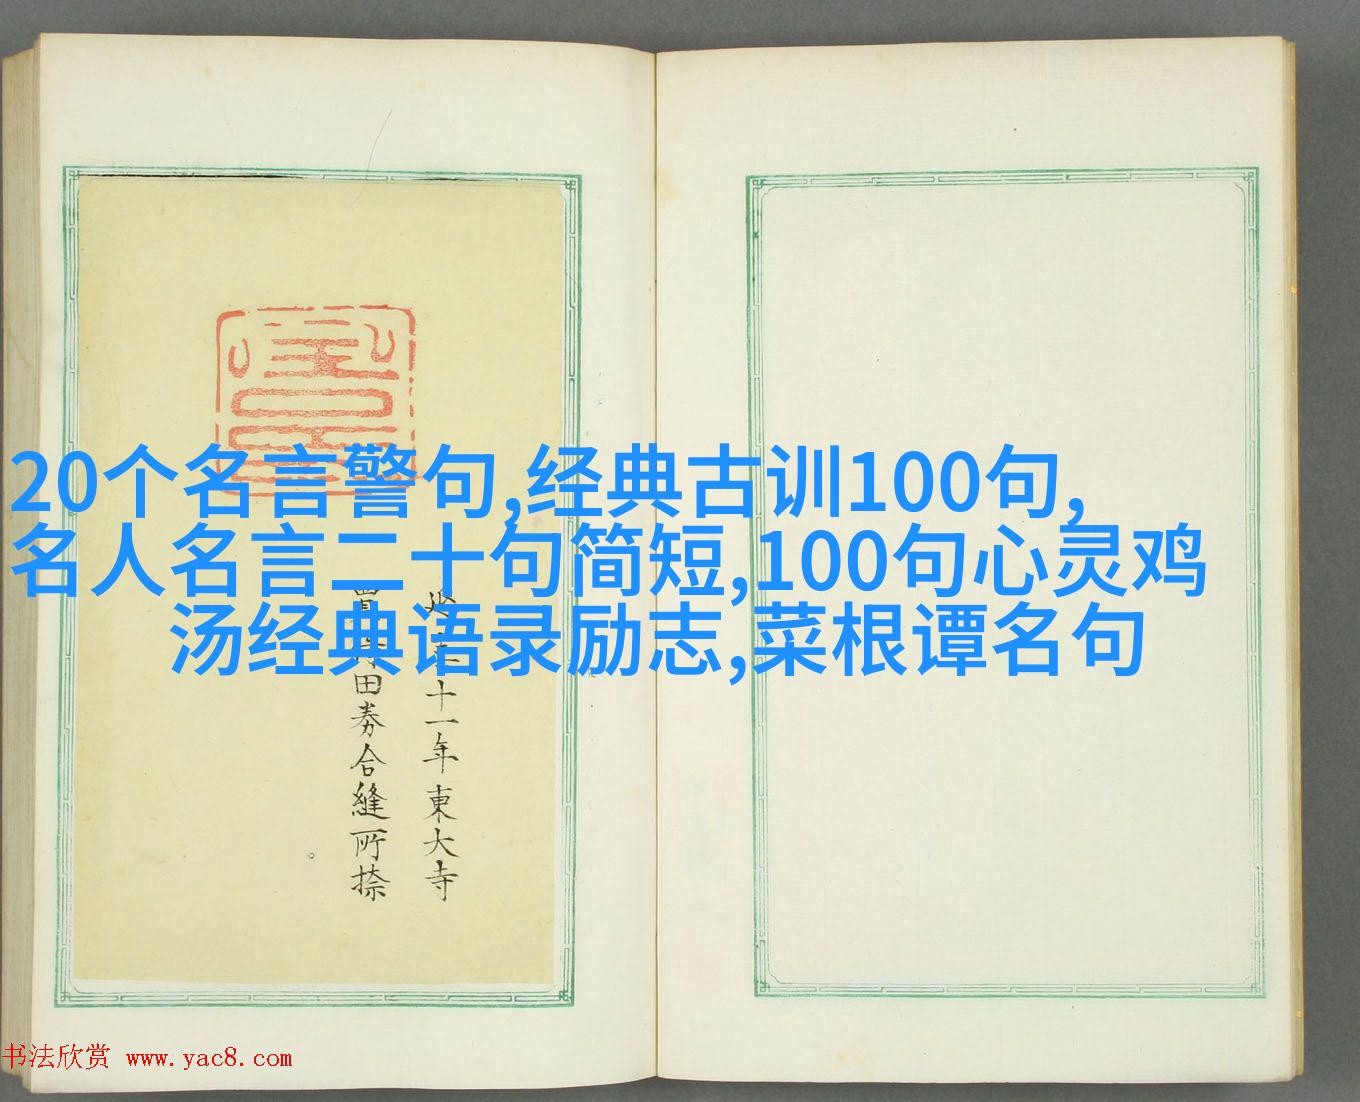 20个名言警句,经典古训100句,
名人名言二十句简短,100句心灵鸡
汤经典语录励志,菜根谭名句
十一年東大寺
田券合縫所捺
书法欣赏 www.yac8.com